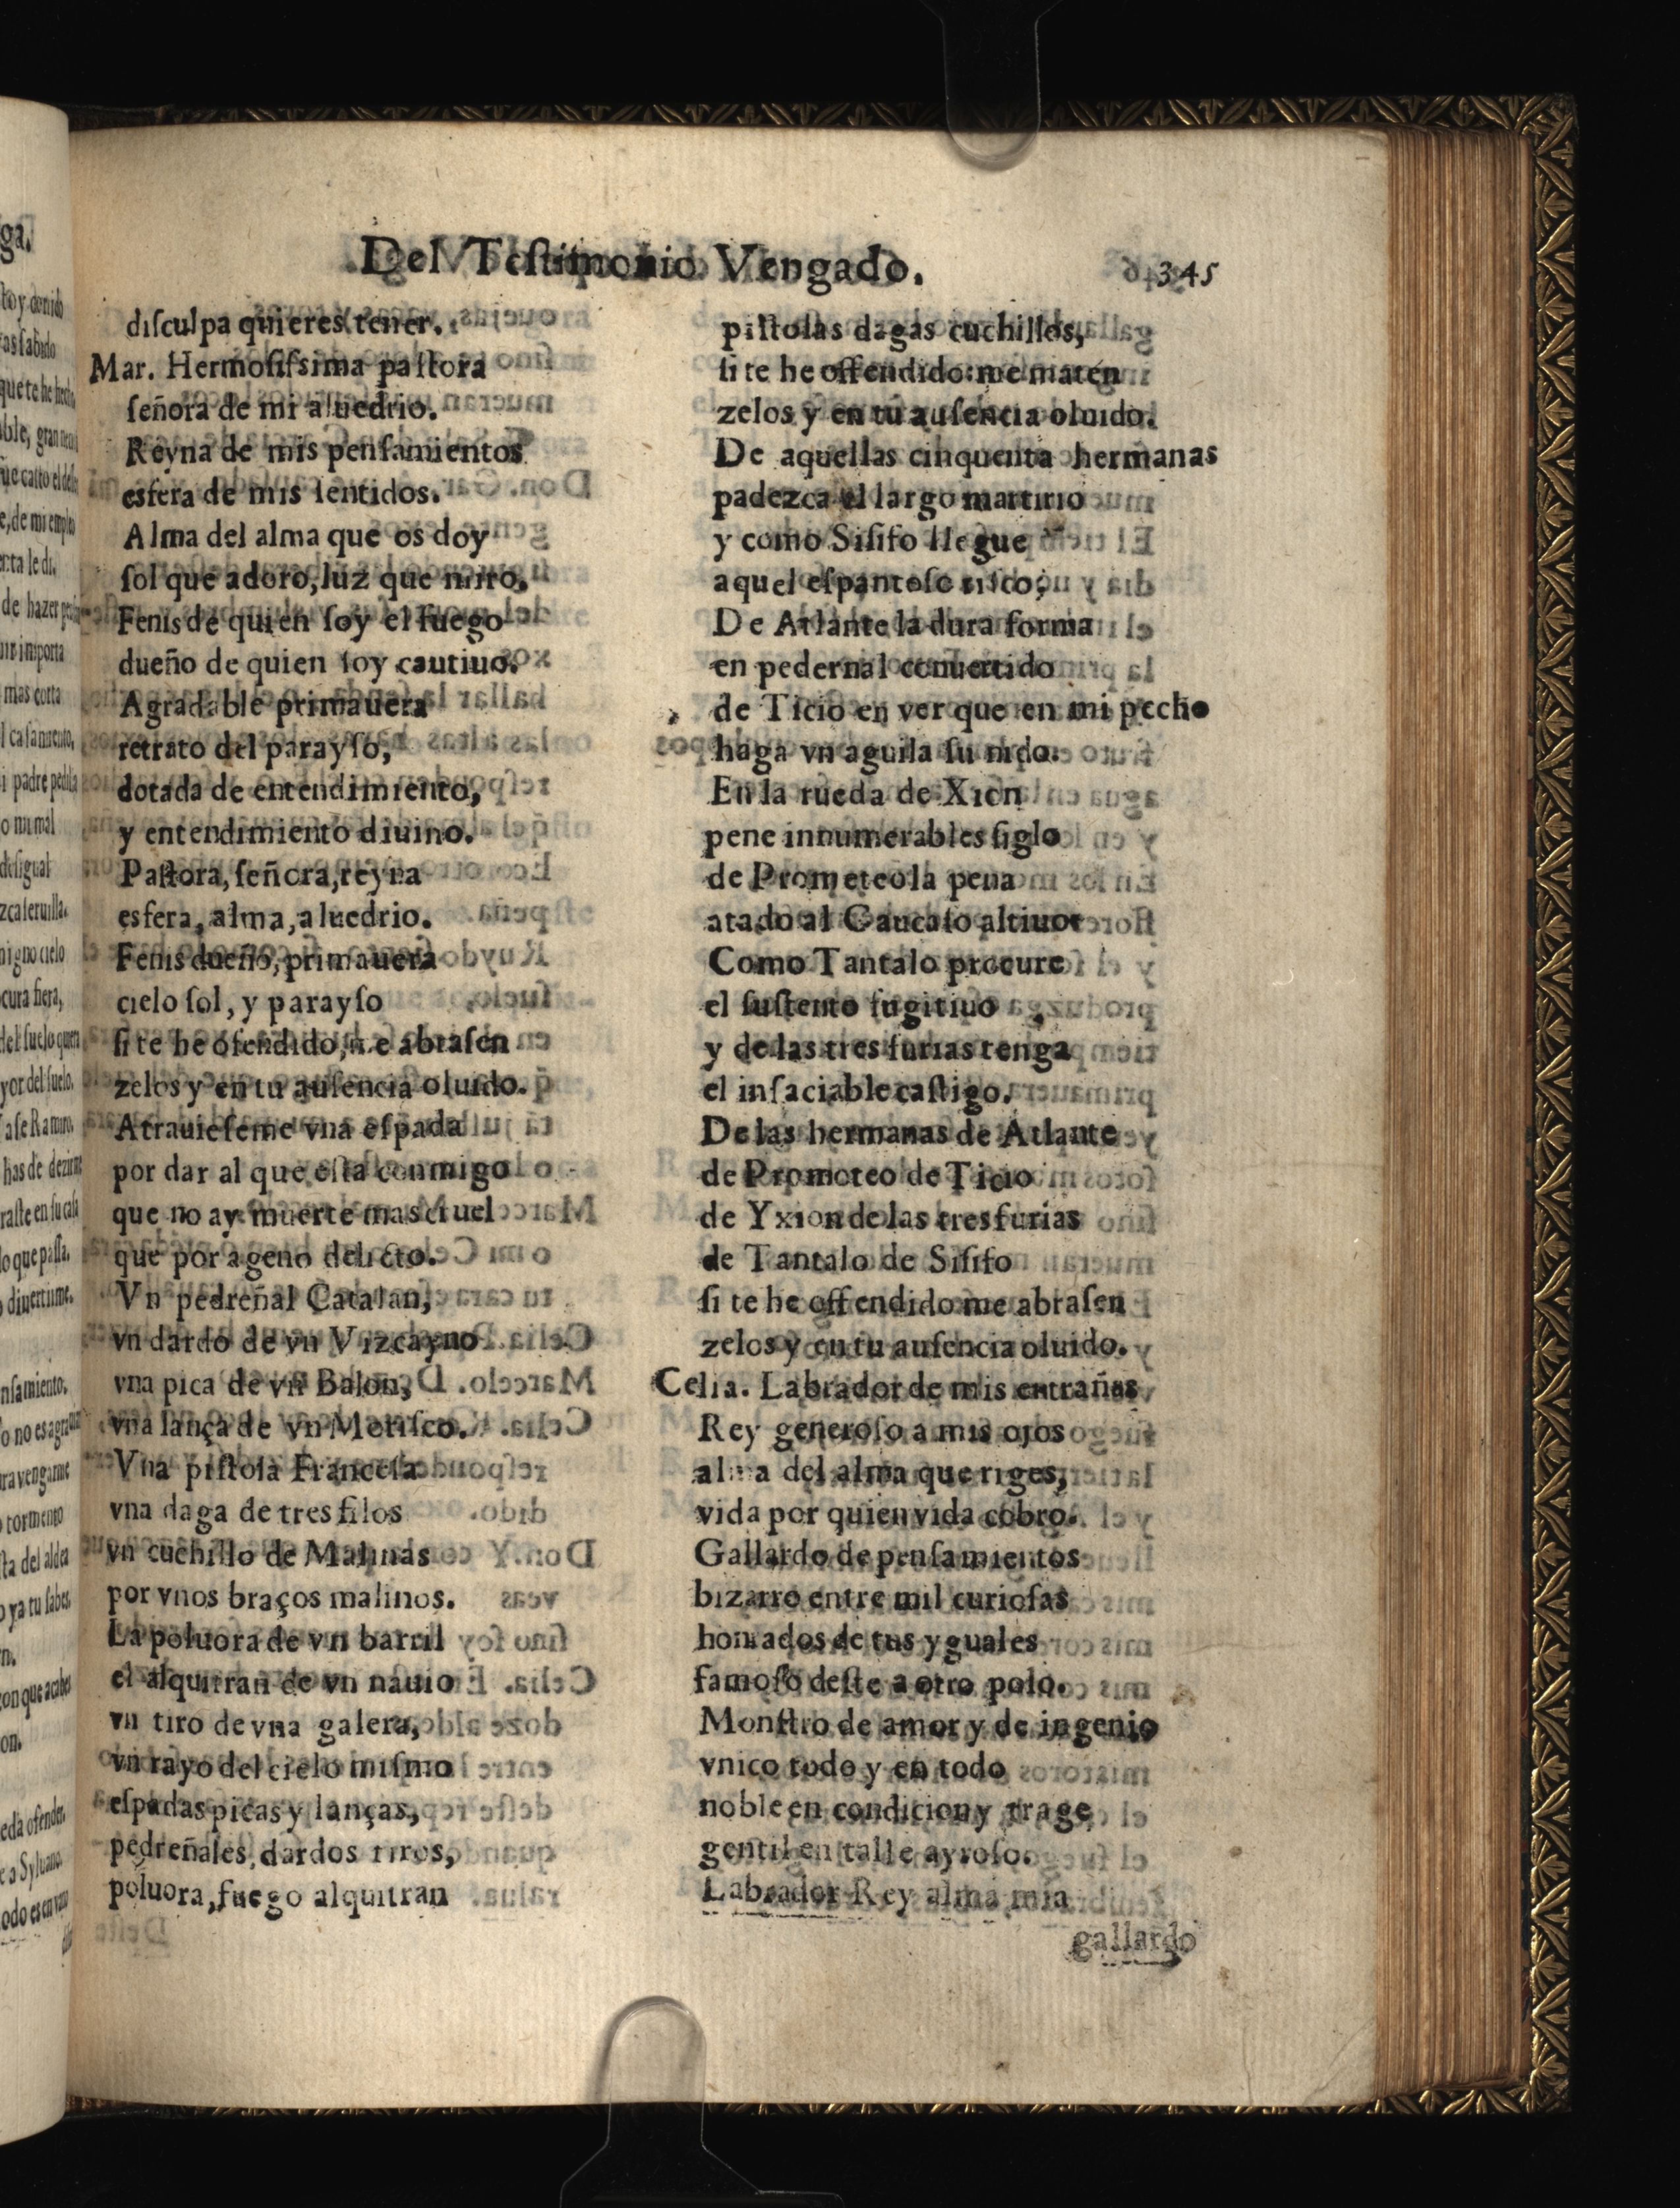 Del Testimonio Vengado.
345
disculpa quieres tener.
Mar. Hermosissima pastora
señora de mi aluedrio.
Reyna de mis pensamientos
esfera de mis sentidos.
Alma del alma que os doy
sol que adoro, luz que miro.
Fenis de quien soy el fuego
dueño de quien soy cautiuo.
Agradable primauera
retrato del parayso,
dotada de entendimiento,
y entendimiento diuino.
Pastora, señora, reyna
esfera, alma, aluedrio.
Fenis dueño, primauera
cielo sol, y parayso
si te he ofendido, me abrasen
zelos y en tu ausencia oluido.
Atrauieseme vna espada
por dar al que esta conmigo
que no ay muerte mas cruel
que por ageno delicto.
Vn pedreñal Catalan,
vn dardo de vn Vizcayno
vna pica de vn Balon,
vna lança de vn Morisco.
Vna pistola Francesa
vna daga de tres filos
vn cuchillo de Malinas
por vnos braços malinos.
La poluora de vn barril
el alquitran de vn nauio
vn tiro de vna galera,
vn rayo del cielo mismo
espadas picas y lanças,
pedreñales, dardos tiros,
poluora, fuego alquitran
pistolas dagas cuchillos,
si te he offendido me maten
zelos y en tu ausencia oluido.
De aquellas cinquenta hermanas
padezca el largo martirio
y como Sisifo llegue
aquel espantoso risco;
De Atlante la dura forma
en pedernal conuertido
de Ticio en ver que en mi pecho
haga vn aguila su nido.
En la rueda de Xion
pene innumerables siglo
de Prometeo la pena
atado al Caucaso altiuo
Como Tantalo procure
el sustento fugitiuo
y de las tres furias tenga
el insaciable castigo.
De las hermanas de Atlante
de Promoteo de Ticio
de Yxion de las tres furias
de Tantalo de Sisifo
si te he offendido me abrasen
zelos y en tu ausencia oluido.
Celia. Labrador de mis entrañas
Rey generoso a mis ojos
alma del alma que riges,
vida por quien vida cobro.
Gallardo de pensamientos
bizarro entre mil curiosas
honrados de tus yguales
famoso deste a otro polo.
Monstro de amor y de ingenio
vnico todo y en todo
noble en condicion y trage
gentil en talle ayroso.
Labrador Rey alma mia
gallardo